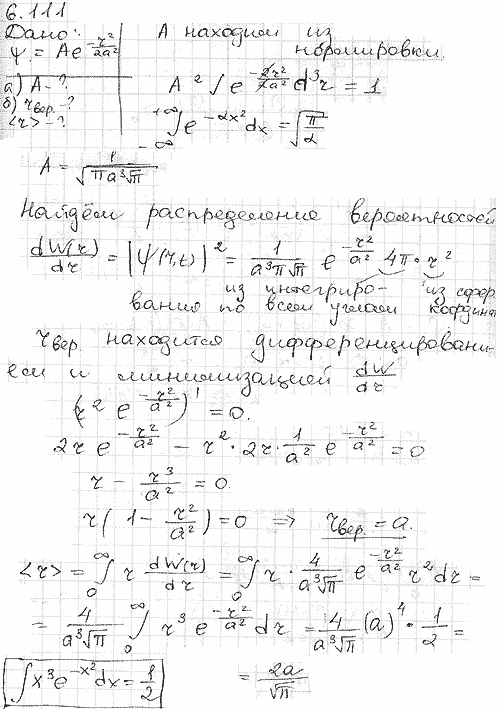 6.111
Дано:
ψ = Ae^{-r²/2a²}
а) A - ?
б) r вер. - ?
<r> - ?
A находим из
нормировки.
A² ∫ e^{-2r²/2a²} d³r = 1
∫_{-∞}^{+∞} e^{-αx²} dx = √(π/α)
A = 1/√(πa³√π)
Найдём распределение вероятностей
dW(r)/dr = |ψ(r,t)|² = 1/(a³π√π) e^{-r²/a²} 4π · r²
из интегриро- из сфер.
вания по всем углам координат
r вер. находится дифференцировани-
ем и минимизацией dW/dr
(r² e^{-r²/a²})' = 0.
2r e^{-r²/a²} - r² · 2r · 1/a² e^{-r²/a²} = 0
r - r³/a² = 0.
r(1 - r²/a²) = 0 => r вер. = a.
<r> = ∫_0^∞ r dW(r)/dr = ∫_0^∞ r · 4/(a³√π) e^{-r²/a²} r² dr =
= 4/(a³√π) ∫_0^∞ r³ e^{-r²/a²} dr = 4/(a³√π) (a)⁴ · 1/2 =
∫x³e^{-x²}dx = 1/2
= 2a/√π